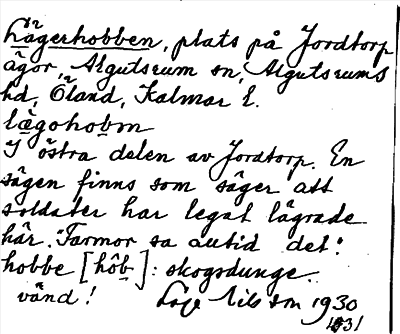 Lägerhobben, plats på Jordtorp
ägor, Algutsrum sn, Algutsrums
hd, Öland, Kalmar l.
lägohobm
I östra delen av Jordtorp. En
sägen finns som säger att
soldater har legat lägrade
här. "Farmor sa alltid det."
hobbe [hôb]: skogsdunge.
vänd! Nilsson 1930
1931